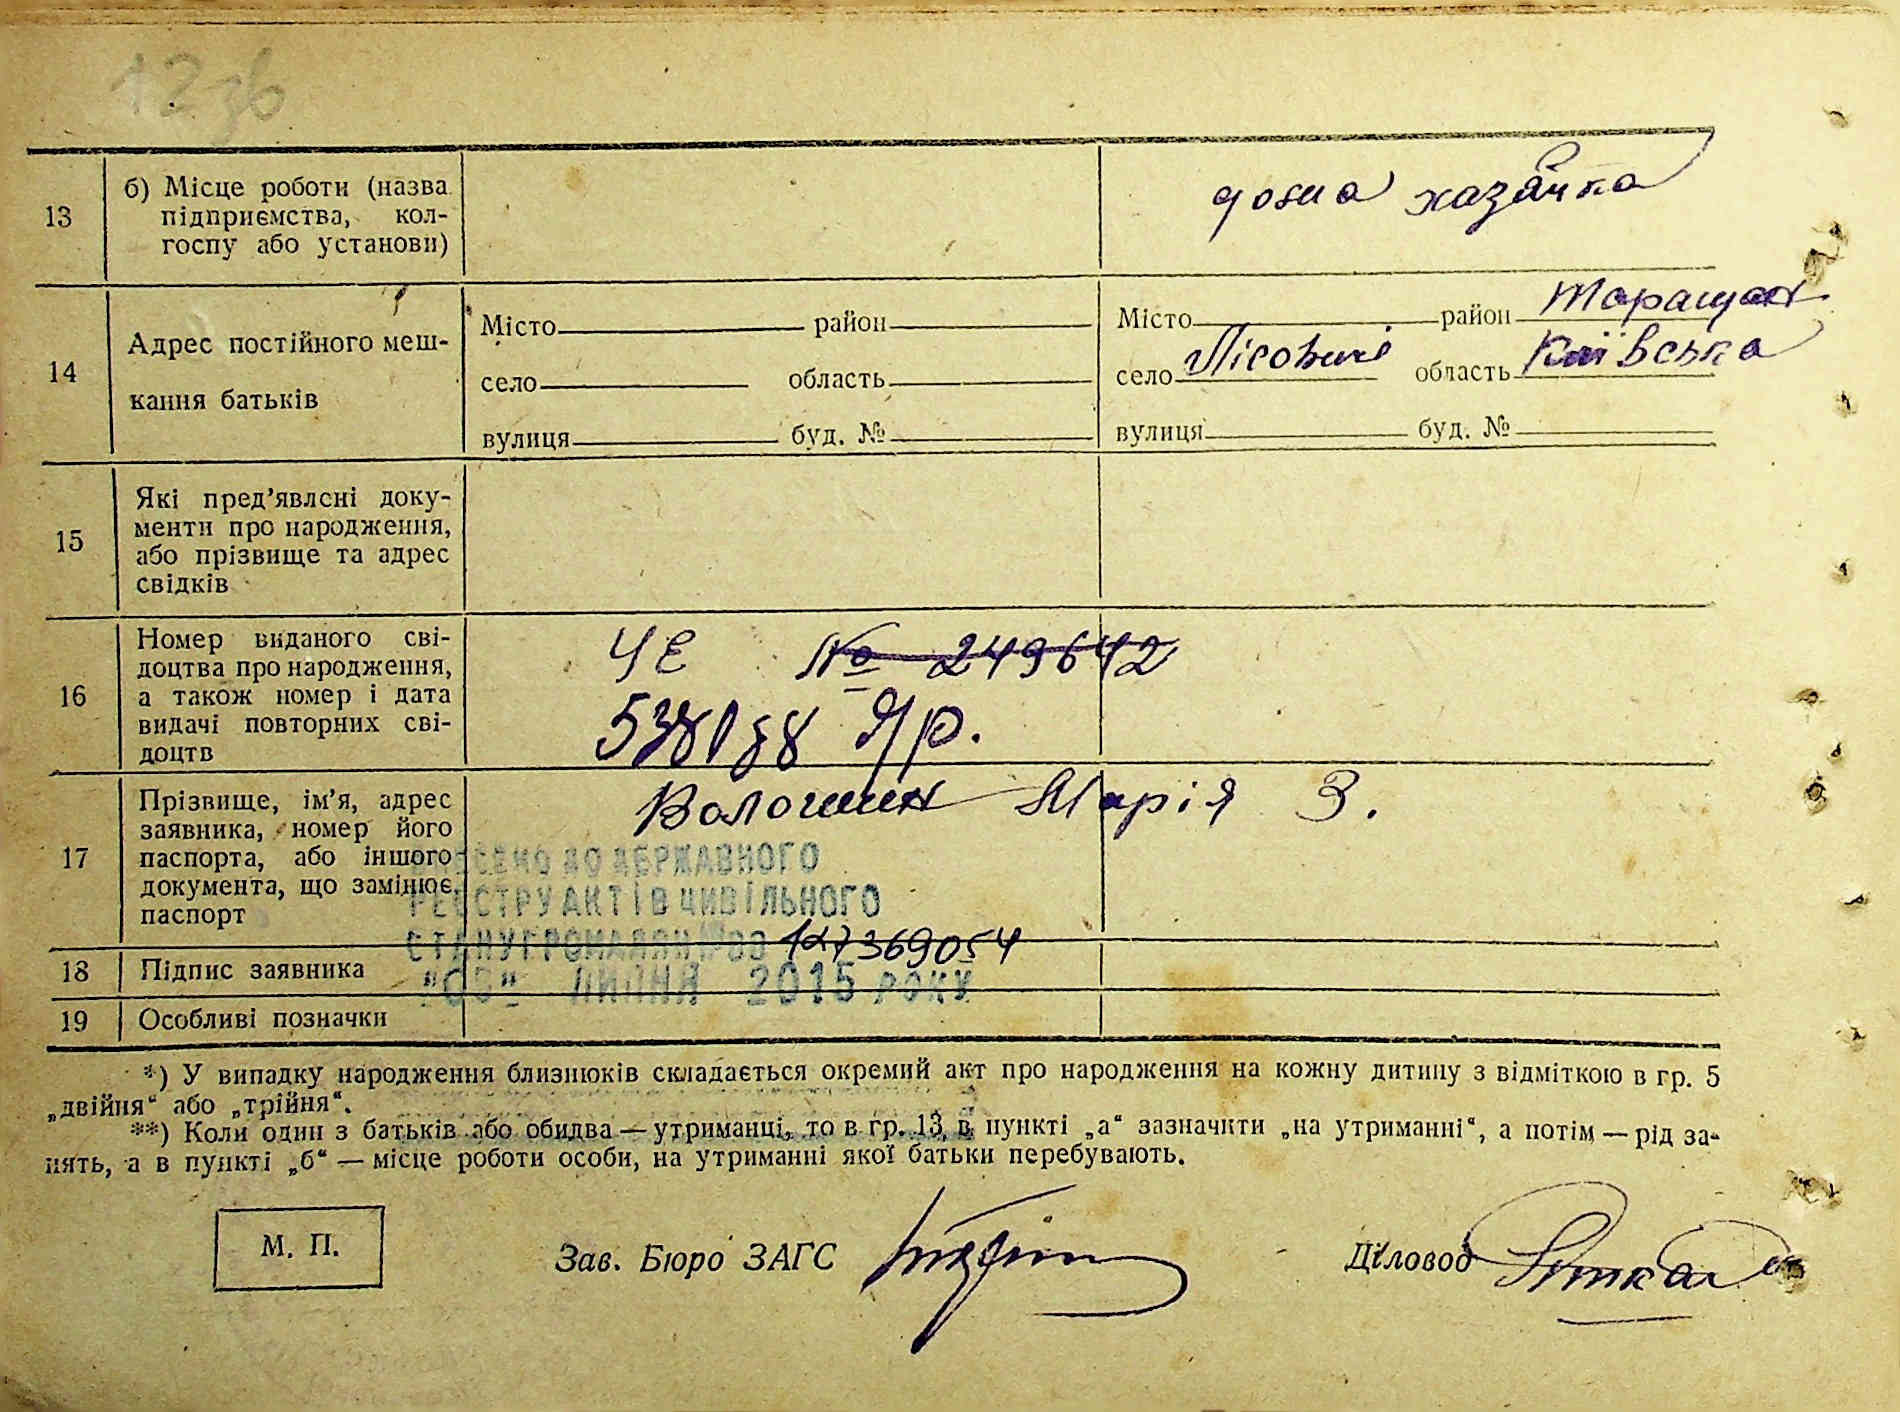 12 зв
13 б) Місце роботи (назва
підприємства, кол-
госпу або установи)
домна хазяйка
14 Адрес постійного меш-
кання батьків
Місто район
село область
вулиця буд. №
Місто район Таращан
село Лісовичі область Київська
вулиця буд. №
15 Які пред’явлені доку-
менти про народження,
або прізвище та адрес
свідків
16 Номер виданого сві-
доцтва про народження,
а також номер і дата
видачі повторних сві-
доцтв
УЄ № 249642
17 Прізвище, ім’я, адрес
заявника, номер його
паспорта, або іншого
документа, що замінює
паспорт
Волошин Марія З.
ВНЕСЕНО ДО ДЕРЖАВНОГО
РЕЄСТРУ АКТІВ ЦИВІЛЬНОГО
СТАНУ ГРОМАДЯН ЗА 127369054
ЛИПНЯ 2015 РОКУ
18 Підпис заявника
19 Особливі позначки
*) У випадку народження близнюків складається окремий акт про народження на кожну дитину з відміткою в гр. 5
„двійня“ або „трійня“.
**) Коли один з батьків або обидва — утриманці, то в гр. 13, в пункті „а“ зазначити „на утриманні“, а потім — рід за-
нять, а в пункті „б“ — місце роботи особи, на утриманні якої батьки перебувають.
М. П.
Зав. Бюро ЗАГС
Діловод